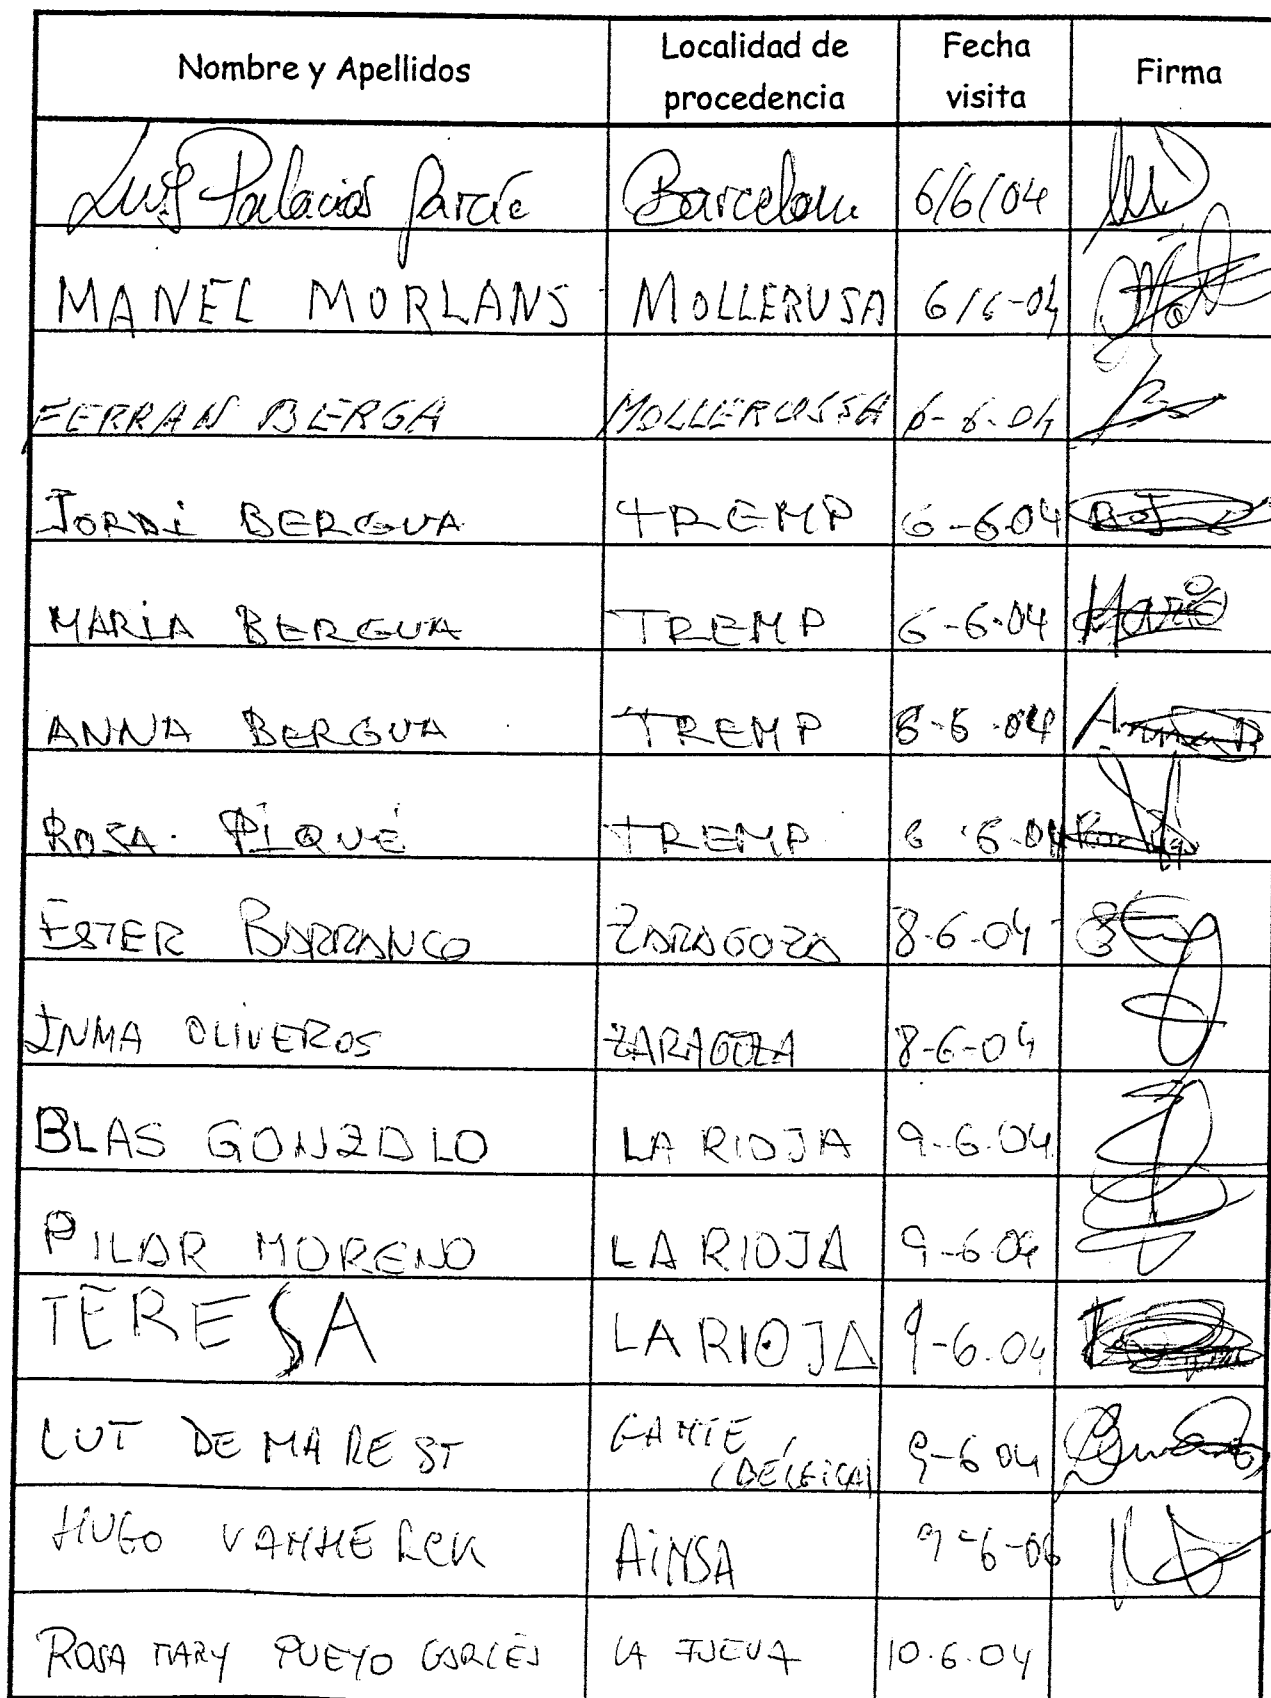 Nombre y Apellidos Localidad de procedencia Fecha visita Firma
Luis Palacios García Barcelona 6/6/04
MANEL MORLANS MOLLERUSA 6/6-04
FERRAN BERGA MOLLERUSSA 6-6-04
JORDI BERGUA TREMP 6-6-04
MARIA BERGUA TREMP 6-6-04 Maria
ANNA BERGUA TREMP 6-6-04 Anna B
ROSA PIQUÉ TREMP 6-6-04
ESTER BARRANCO ZARAGOZA 8-6-04
INMA OLIVEROS ZARAGOZA 8-6-04
BLAS GONZALO LA RIOJA 9-6-04
PILAR MORENO LA RIOJA 9-6-04
TERESA LA RIOJA 9-6-04
LUT DEMAREST GANTE (BÉLGICA) 9-6 04
HUGO VANHERCK AINSA 9-6-06
ROSA MARY PUEYO GARCÉS 10.6.04